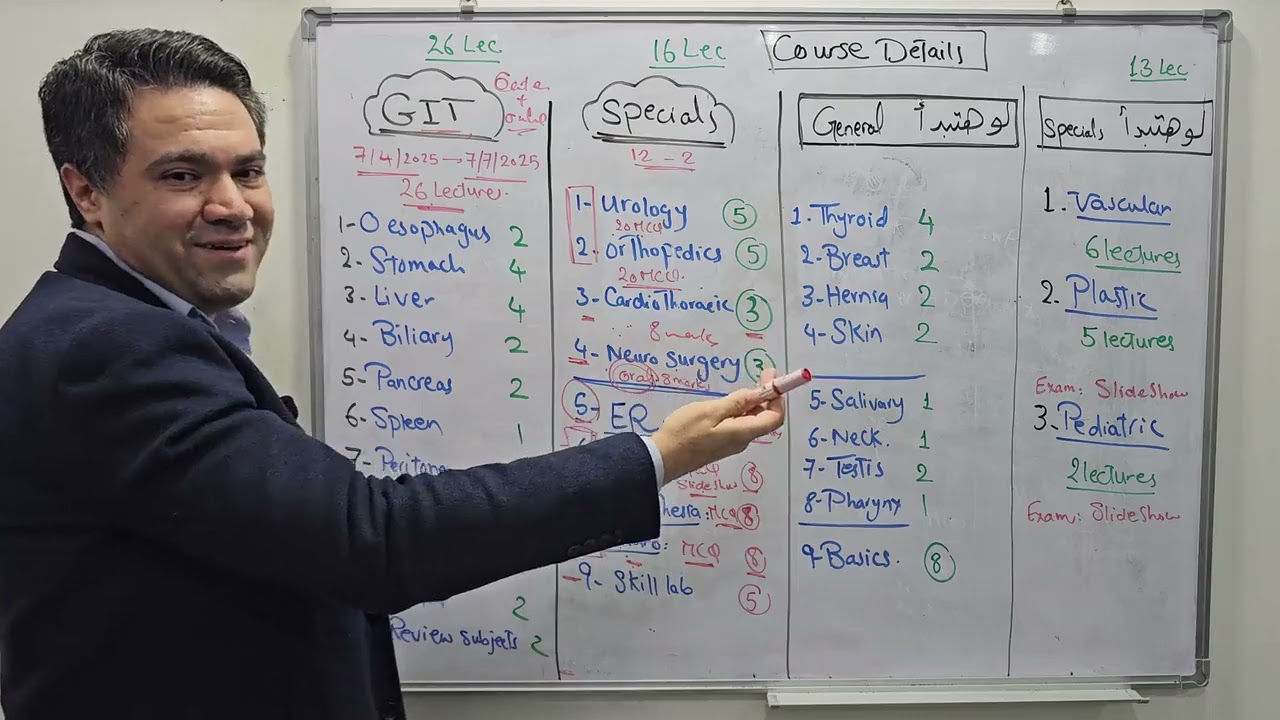 Course Details
26 Lec
GIT
7/4/2025 → 7/7/2025
26 Lectures.
1- Oesophagus 2
2- Stomach 4
3- Liver 4
4- Biliary 2
5- Pancreas 2
6- Spleen 1
7- Perito
2
Review subjects 2
16 Lec
Specials
12 - 2
1- Urology 5
20 MCQ
2- Orthopedics 5
20 MCQ.
3- Cardiothoracic 3
8 marks
4- Neuro surgery 3
oral 8 marks
5- ER
Slideshow 8
MCQ 8
MCQ 8
9- Skill lab 5
General لو هتبدأ
1. Thyroid 4
2- Breast 2
3- Hernia 2
4- Skin 2
5- Salivary 1
6- Neck. 1
7- Testis 2
8- Pharynx 1
9- Basics. 8
13 Lec
Specials لو هتبدأ
1. Vascular
6 lectures
2. Plastic
5 lectures
Exam: Slideshow
3. Pediatric
2 lectures
Exam: Slideshow